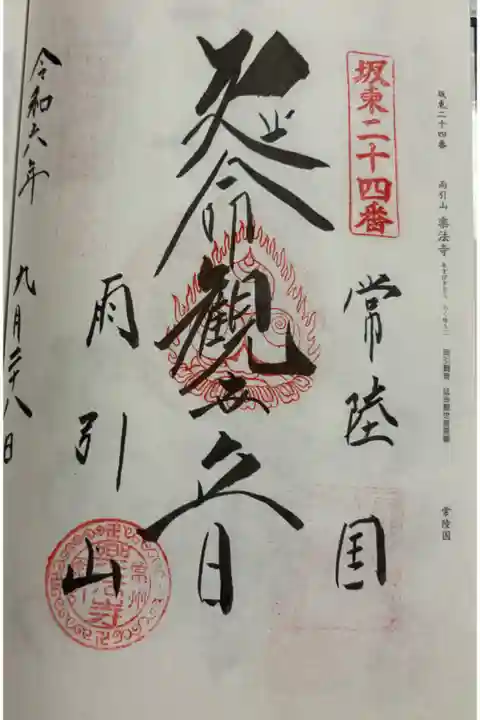 坂東二十四番　雨引山　楽法寺　常陸国
坂東二十四番
常陸国
延命観世音
雨引山
令和六年　九月二十八日
常州